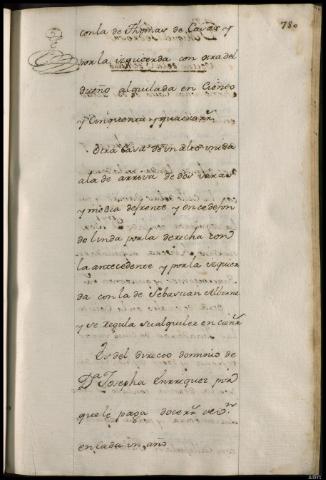 780
con la de Thomas de Casas y
por la izquierda con otra del
dueño alquilada en Ciento
y Cinquenta y quatro rrs
Otra Casa de un alto unida
a la de arriva de dos varas
y media de frente y en el de fon
do linda por la derecha con
la antecedente y por la izquier
da con la de Sebastian
y se regula su alquiler en
Es del directo dominio de
Da Josepha Enrriquez por
que le paga doce rrs vn
en cada un año